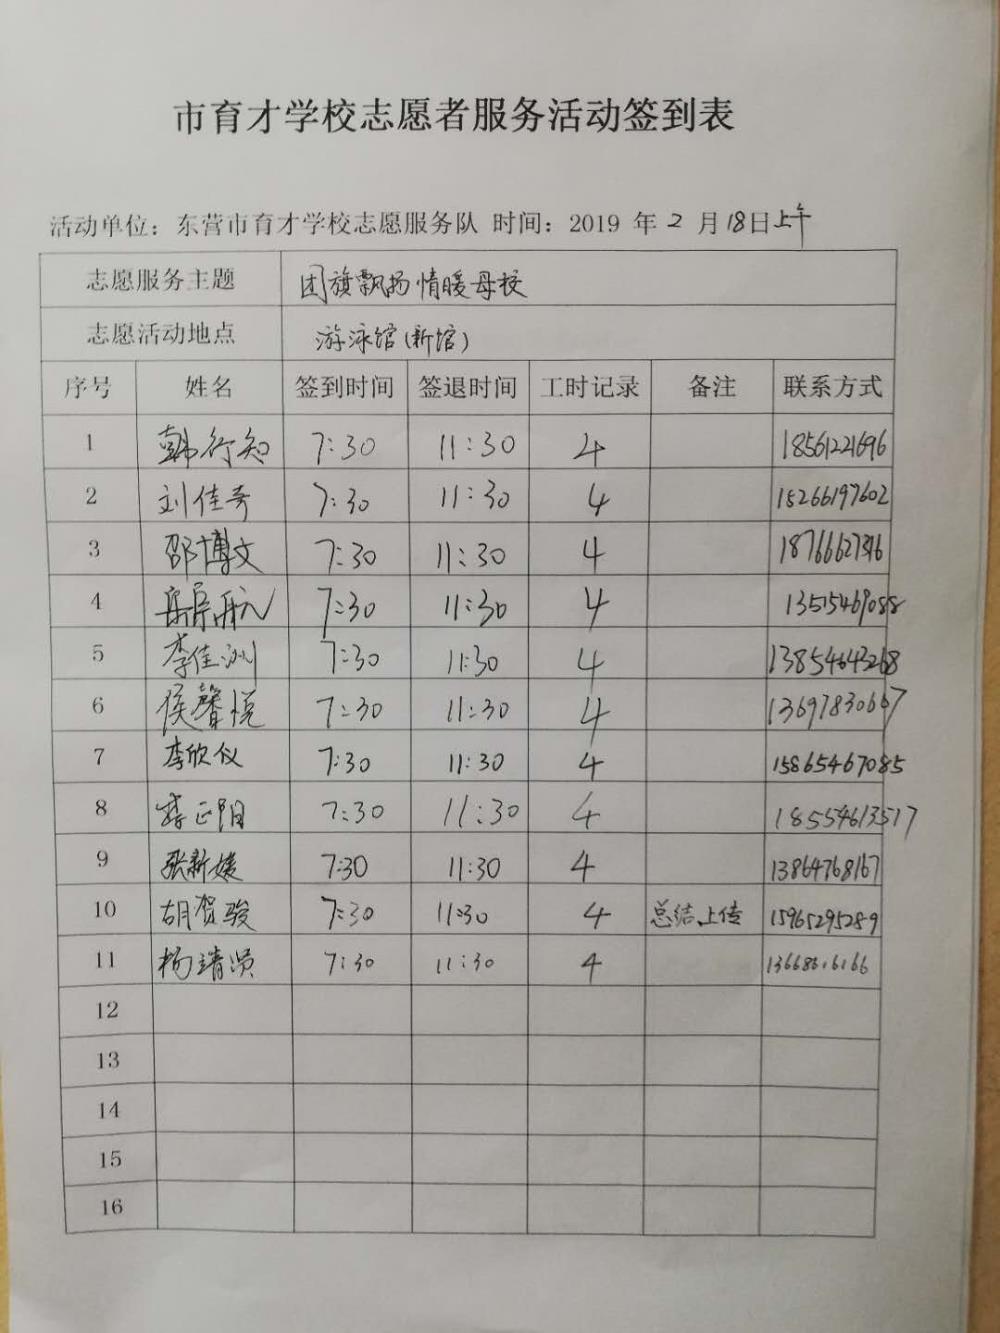 市育才学校志愿者服务活动签到表
活动单位：东营市育才学校志愿服务队 时间：2019 年 2 月 18日上午
志愿服务主题 团旗飘扬 情暖母校
志愿活动地点 游泳馆(新馆)
序号 姓名 签到时间 签退时间 工时记录 备注 联系方式
1 韩行知 7:30 11:30 4 18561221696
2 刘佳奇 7:30 11:30 4 15266197602
3 邵博文 7:30 11:30 4
4 7:30 11:30 4 13515469088
5 李佳洲 7:30 11:30 4 13854643268
6 侯馨悦 7:30 11:30 4 13697830667
7 李欣仪 7:30 11:30 4 15865467085
8 李正阳 7:30 11:30 4 18554613517
9 张新媛 7:30 11:30 4 13864768167
10 胡贺骏 7:30 11:30 4 总结、上传 15965295289
11 杨靖 7:30 11:30 4 13668616166
12
13
14
15
16